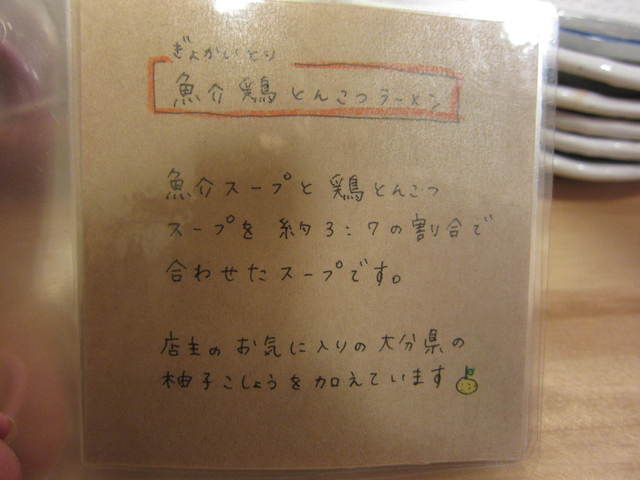 ぎょかいとり
魚介鶏とんこつラーメン
魚介スープと鶏とんこつ
スープを約3:7の割り合で
合わせたスープです。
店主のお気に入りの大分県の
柚子こしょうを加えています